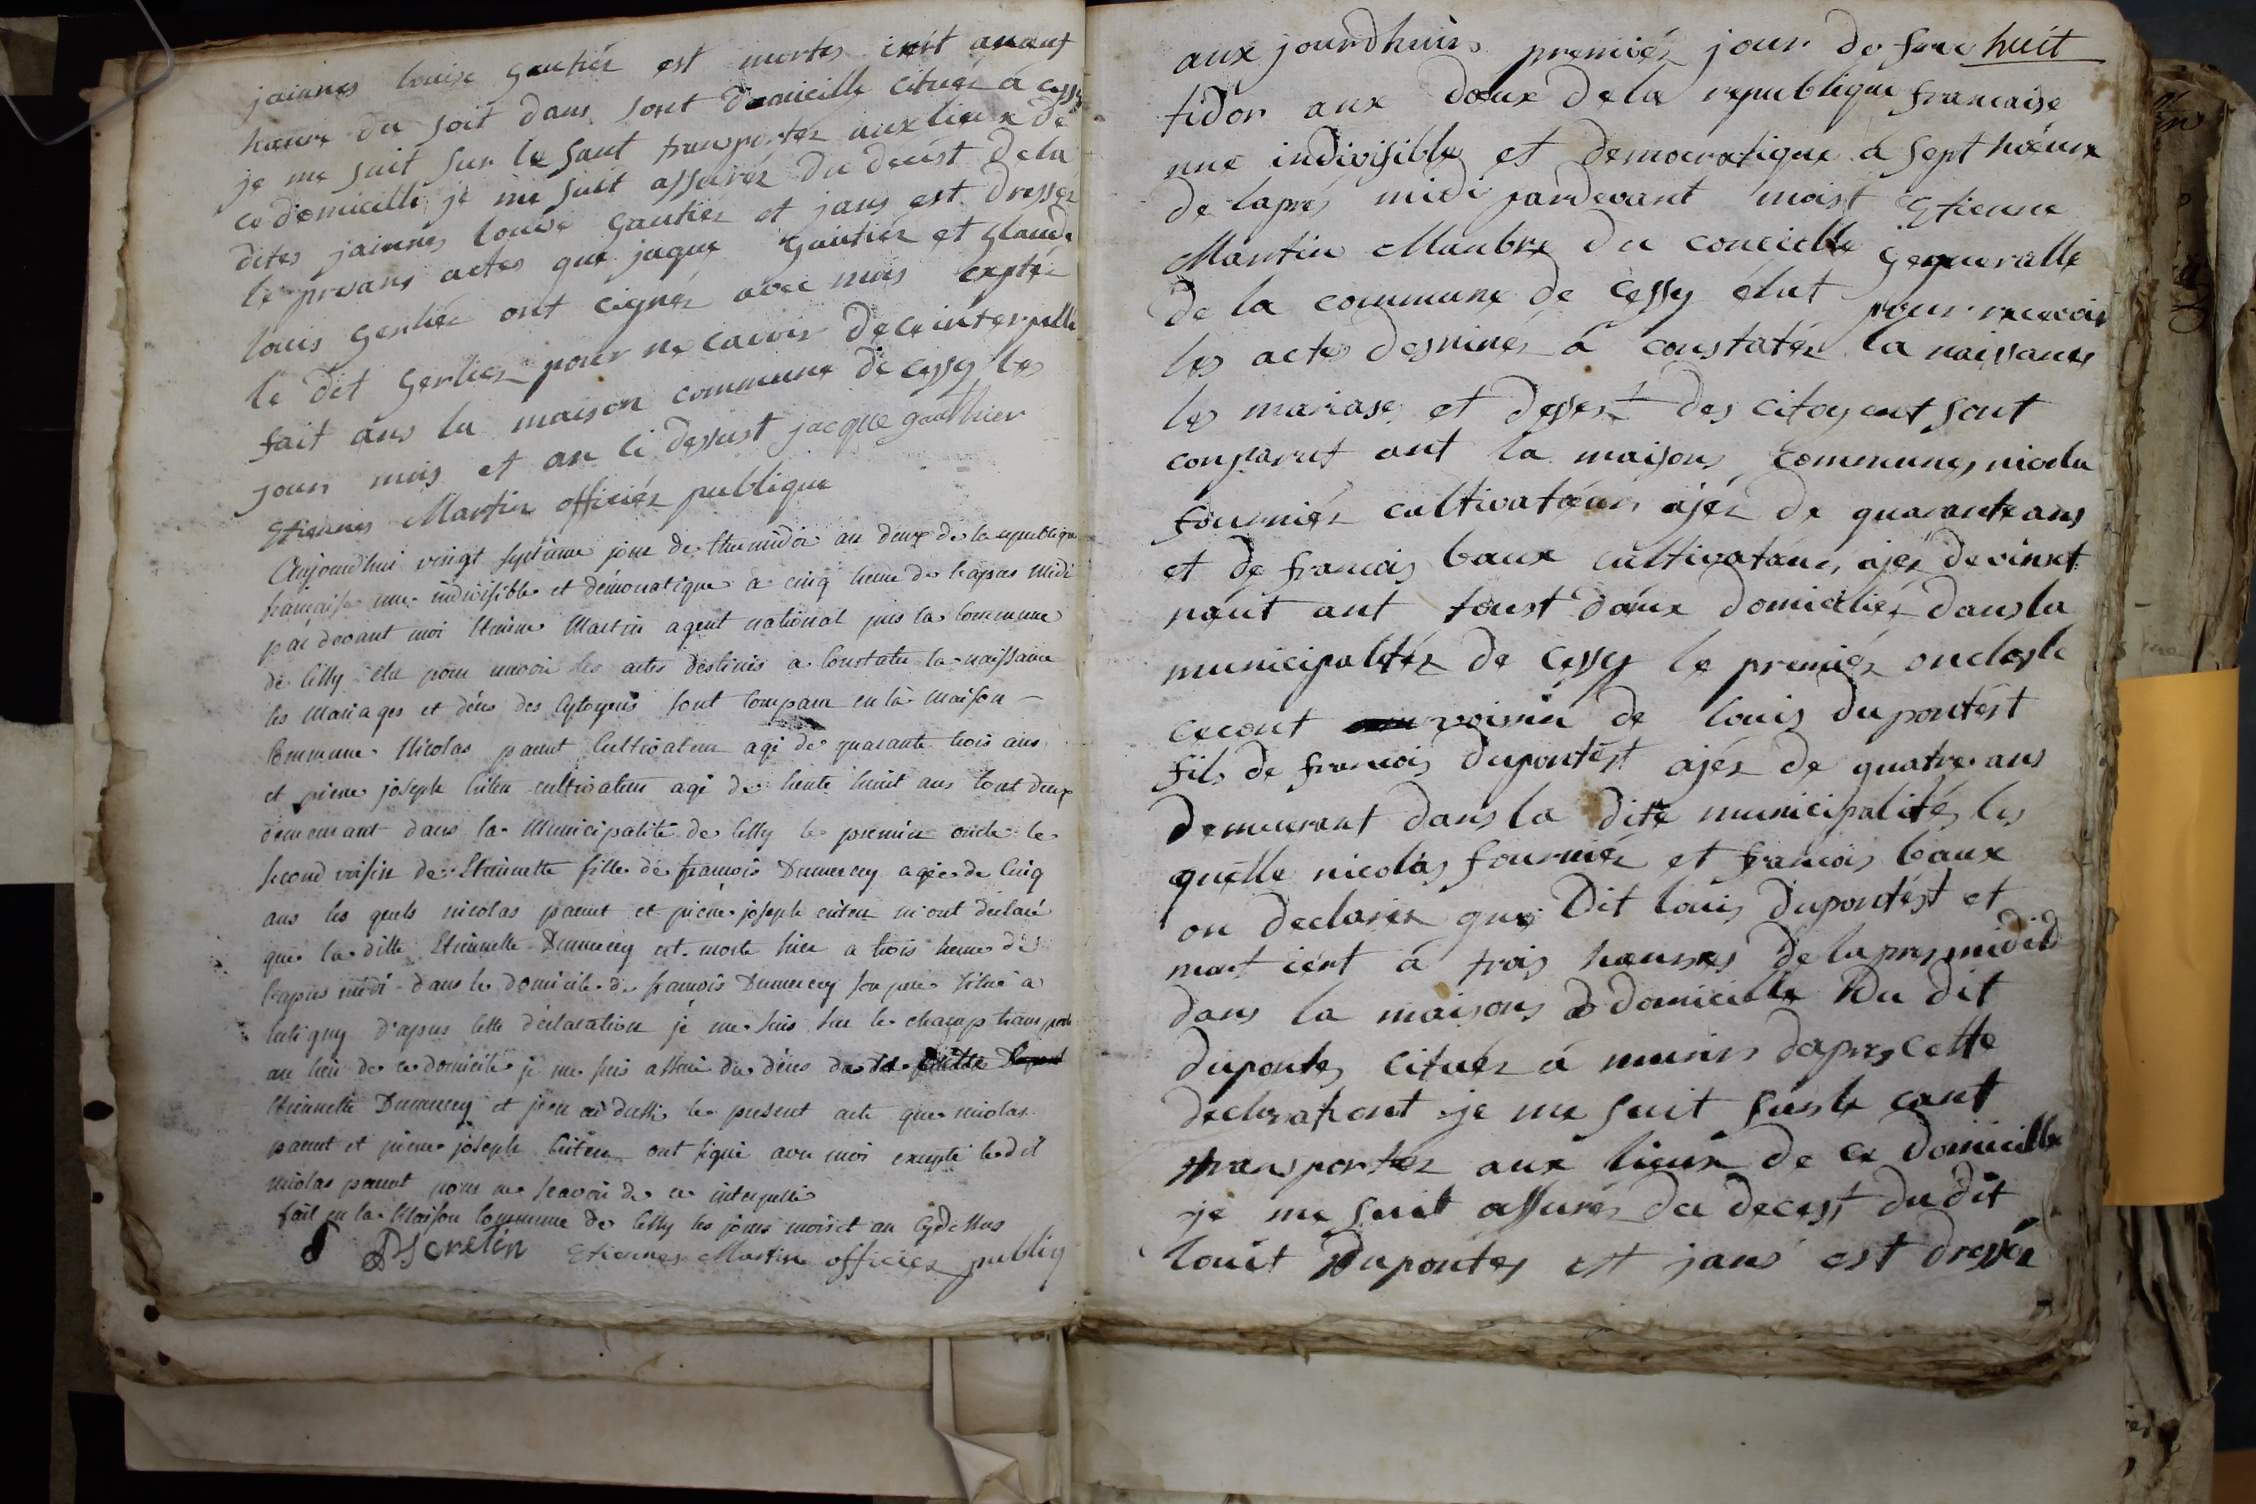 jainnes louise gautiér est mortes iert aneuf
hœure du soit dans sont domicille cituéz a cessy
je me suit sur le sant transportéz aux lieux de
ce domicille je me suit assuréz du decést dela
dites jainnes louise gautiéz et jans est dresséz
le presans actes que jaque gautiéz et glaude
louis gerliéz ont cignéz avec mois exptéz
le dit gerliez pour ne cavoir de ce interpelle
fait ans la maison commune de cessy les
jour mois et an ci dessust jacque gauthier
Etiennes Martin officiéz publique
Aujourd'hui vingt septieme jour de thermidor an deux de la republique
francaise une indivisible et démocratique a cinq heure de l'apres midi
par devant moi Etienne Martin agent national pres la commune
de Cessy elu pour recevoir les actes destinés a constater la naissance
les Mariages et décés des Cytoyens sont comparu en la maison
Commune Nicolas panut Cultivateur agé de quarante trois ans
et pierre joseph cretin cultivateur agé de trente huit ans tout deux
demeurant dans la Municipalité de Cessy le premier oncle le
second voisin de Etiennette fille de francois Dumurcey agée de Cinq
ans les quels nicolas panut et pierre joseph cretin m'ont declaré
que la ditte Etiennette Dumurcey est morte hier a trois heure de
l'apres midi dans le domicile de francois Dumurcey son pere situé a
d'apres cette déclaration je me suis sur le champ transporté
au lieu de ce domicile je me suis assuré du déces de
Etiennette Dumurcey et j'en ai dressé le present acte que nicolas
panut et pierre joseph Cretin ont signé avec moi excepté ledit
nicolas panut pour ne scavoir de ce interpellé
fait en la Maison Commune de Cessy les jours mois et an Cydessus
P J cretin Etiennes Martin officiez publiq
huit
aux jourdhuis premiér jour de fruc
tidor aux doeux dela republique francaise
une indivisible et democratique à sept hœure
de lapres midi pardevant moist Etienne
Martin Manbre du conciellé genueralle
de la commune de cessy élut pour recevoir
les actes desninés à constatéz la naissances
les mariase et dessest des citoyent sont
conparut ant la maisons communes nicola
fourniéz cultivatœurs ajéz de quarante ans
et de francois baux cultivatœurs ajéz de vinst
naut ant toust dœux domiciliéz dans la
municipalitéz de cessy le premiéz oncles le
cecont voisin de louis dupontést
fils de francois dupontést ajéz de quatre ans
demeurant dans la dite municipalités les
quelle nicolas fourniéz et francois baux
on declaréz que dit louis dupontést et
mort iért à trois hœures delapres midi
dans la maisons domicille du dit
dupontes cituéz à munis dapres cette
declarationt je me suit surle cant
transportéz aux lieux de ce domicille
je me suit assuréz du decest du dit
louit dupontes et jans est dresséz